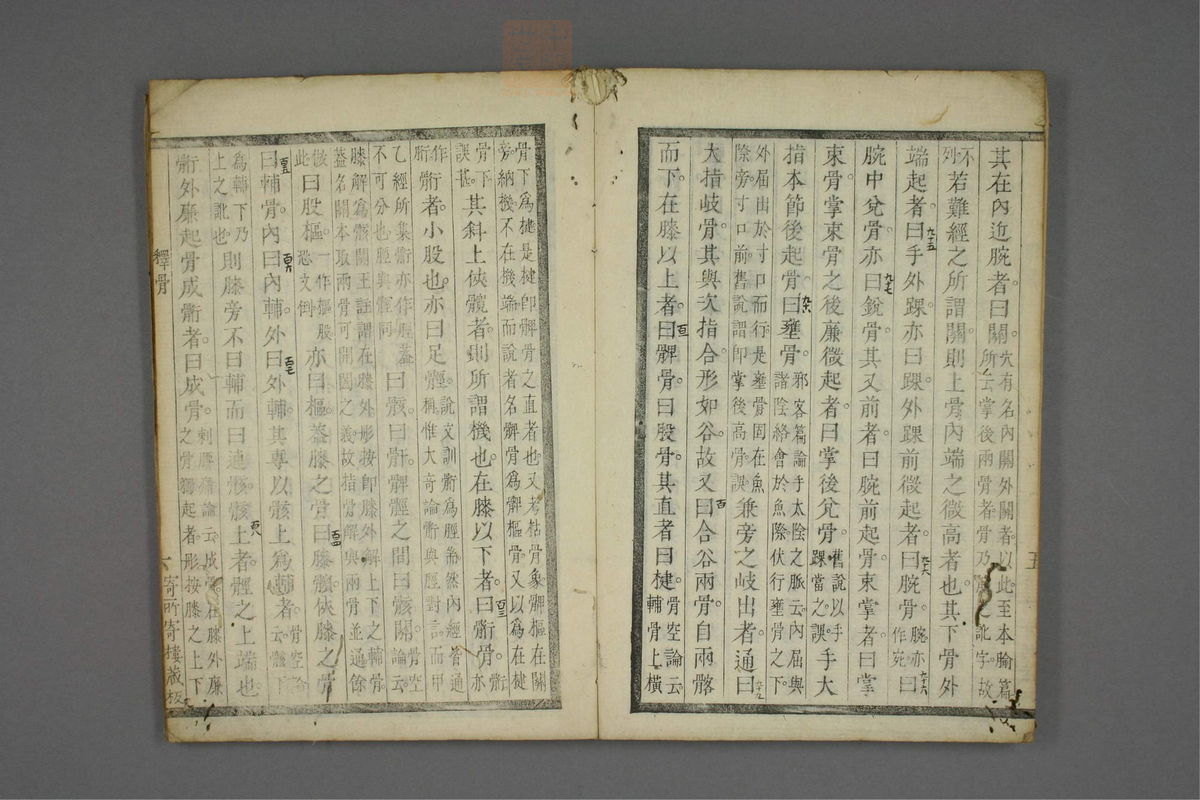 其在內近腕者曰關穴有名內關外關者以此至本腧篇
所云掌後兩骨者骨乃關之訛字故
不
列若難經之所謂關則上骨內端之微高者也其下骨外
端起者曰手外踝亦曰踝外踝前微起者曰腕骨腕亦作宛曰
腕中兌骨亦曰銳骨其又前者曰腕前起骨束掌者曰掌
束骨掌束骨之後廉微起者曰掌後兌骨舊說以手踝當之誤手大
指本節後起骨曰壅骨邪客篇論手太陰之脈云內屈與
諸陰絡會於魚際伏行壅骨之下
外屈出於寸口而行是壅骨固在魚
際旁寸口前舊說謂即掌後高骨誤兼旁之岐出者通曰
大指岐骨其與次指合形如谷故又曰合谷兩骨自兩髂
而下在膝以上者曰髀骨曰股骨其直者曰楗骨空論云輔骨上橫
五
骨下爲楗是楗卽髀骨之直者也又考枯骨象髀樞在關
旁納機不在機端而說者名髀骨爲髀樞骨又以爲在楗
骨下
誤甚其斜上俠髖者則所謂機也在膝以下者曰胻骨胻亦
作
胻胻者小股也亦曰足脛說文訓胻爲脛耑然內經皆通
稱惟大奇論胻與脛對言而甲
乙經所集胻亦作脛蓋
不可分也脛與䯒同曰骸曰骭髀脛之間曰骸關骨空論云
膝解爲骸關王註謂在膝外形按卽膝外解上下之輔骨
蓋名關本取兩骨可開闔之義故指骨解與兩骨並通餘
骸倣
此曰股樞一作樞股恐文倒亦曰樞蓋膝之骨曰膝髕俠膝之骨
曰輔骨內曰內輔外曰外輔其專以骸上爲輔者骨空論云骸下
爲輔下乃
上之訛也則膝旁不曰輔而曰連骸骸上者脛之上端也
胻外廉起骨成胻者曰成骨刺腰痛論云成骨在膝外廉
之骨獨起者形按膝之上下
釋骨
六
寄所寄樓藏板